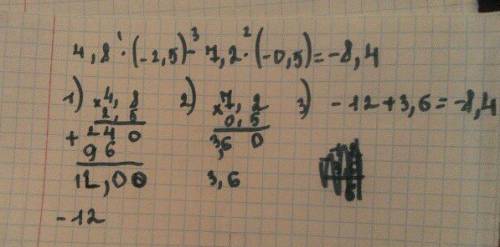 4,8 · (-2,5) - 7,2 · (-0,5) = -8,4
1 3 2
1) × 4,8 2) × 7,2 3) -12 + 3,6 = -8,4
2,5 0,5
+ 240 3,60
96
12,00 3,6
-12